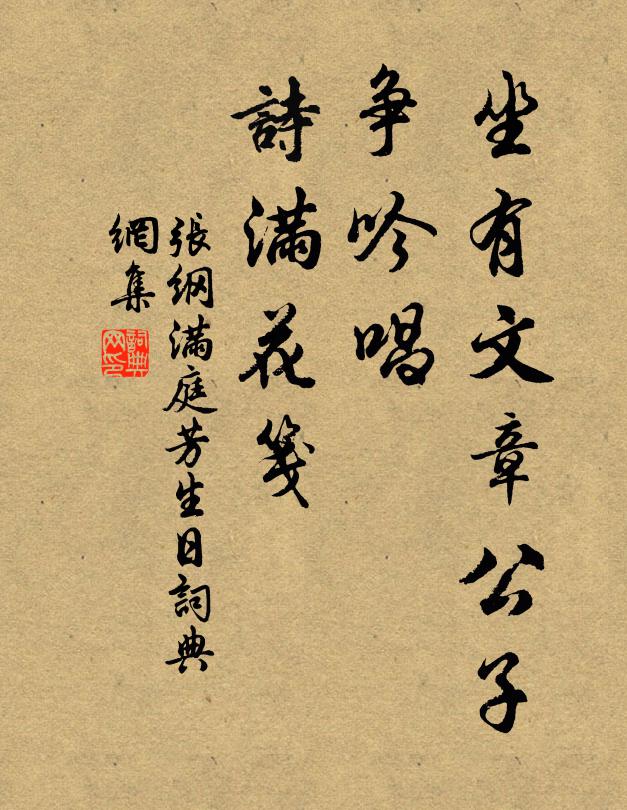 坐有文章公子
争吟唱
詩滿花箋
張纲滿庭芳生日詞典
網集
詞典网印